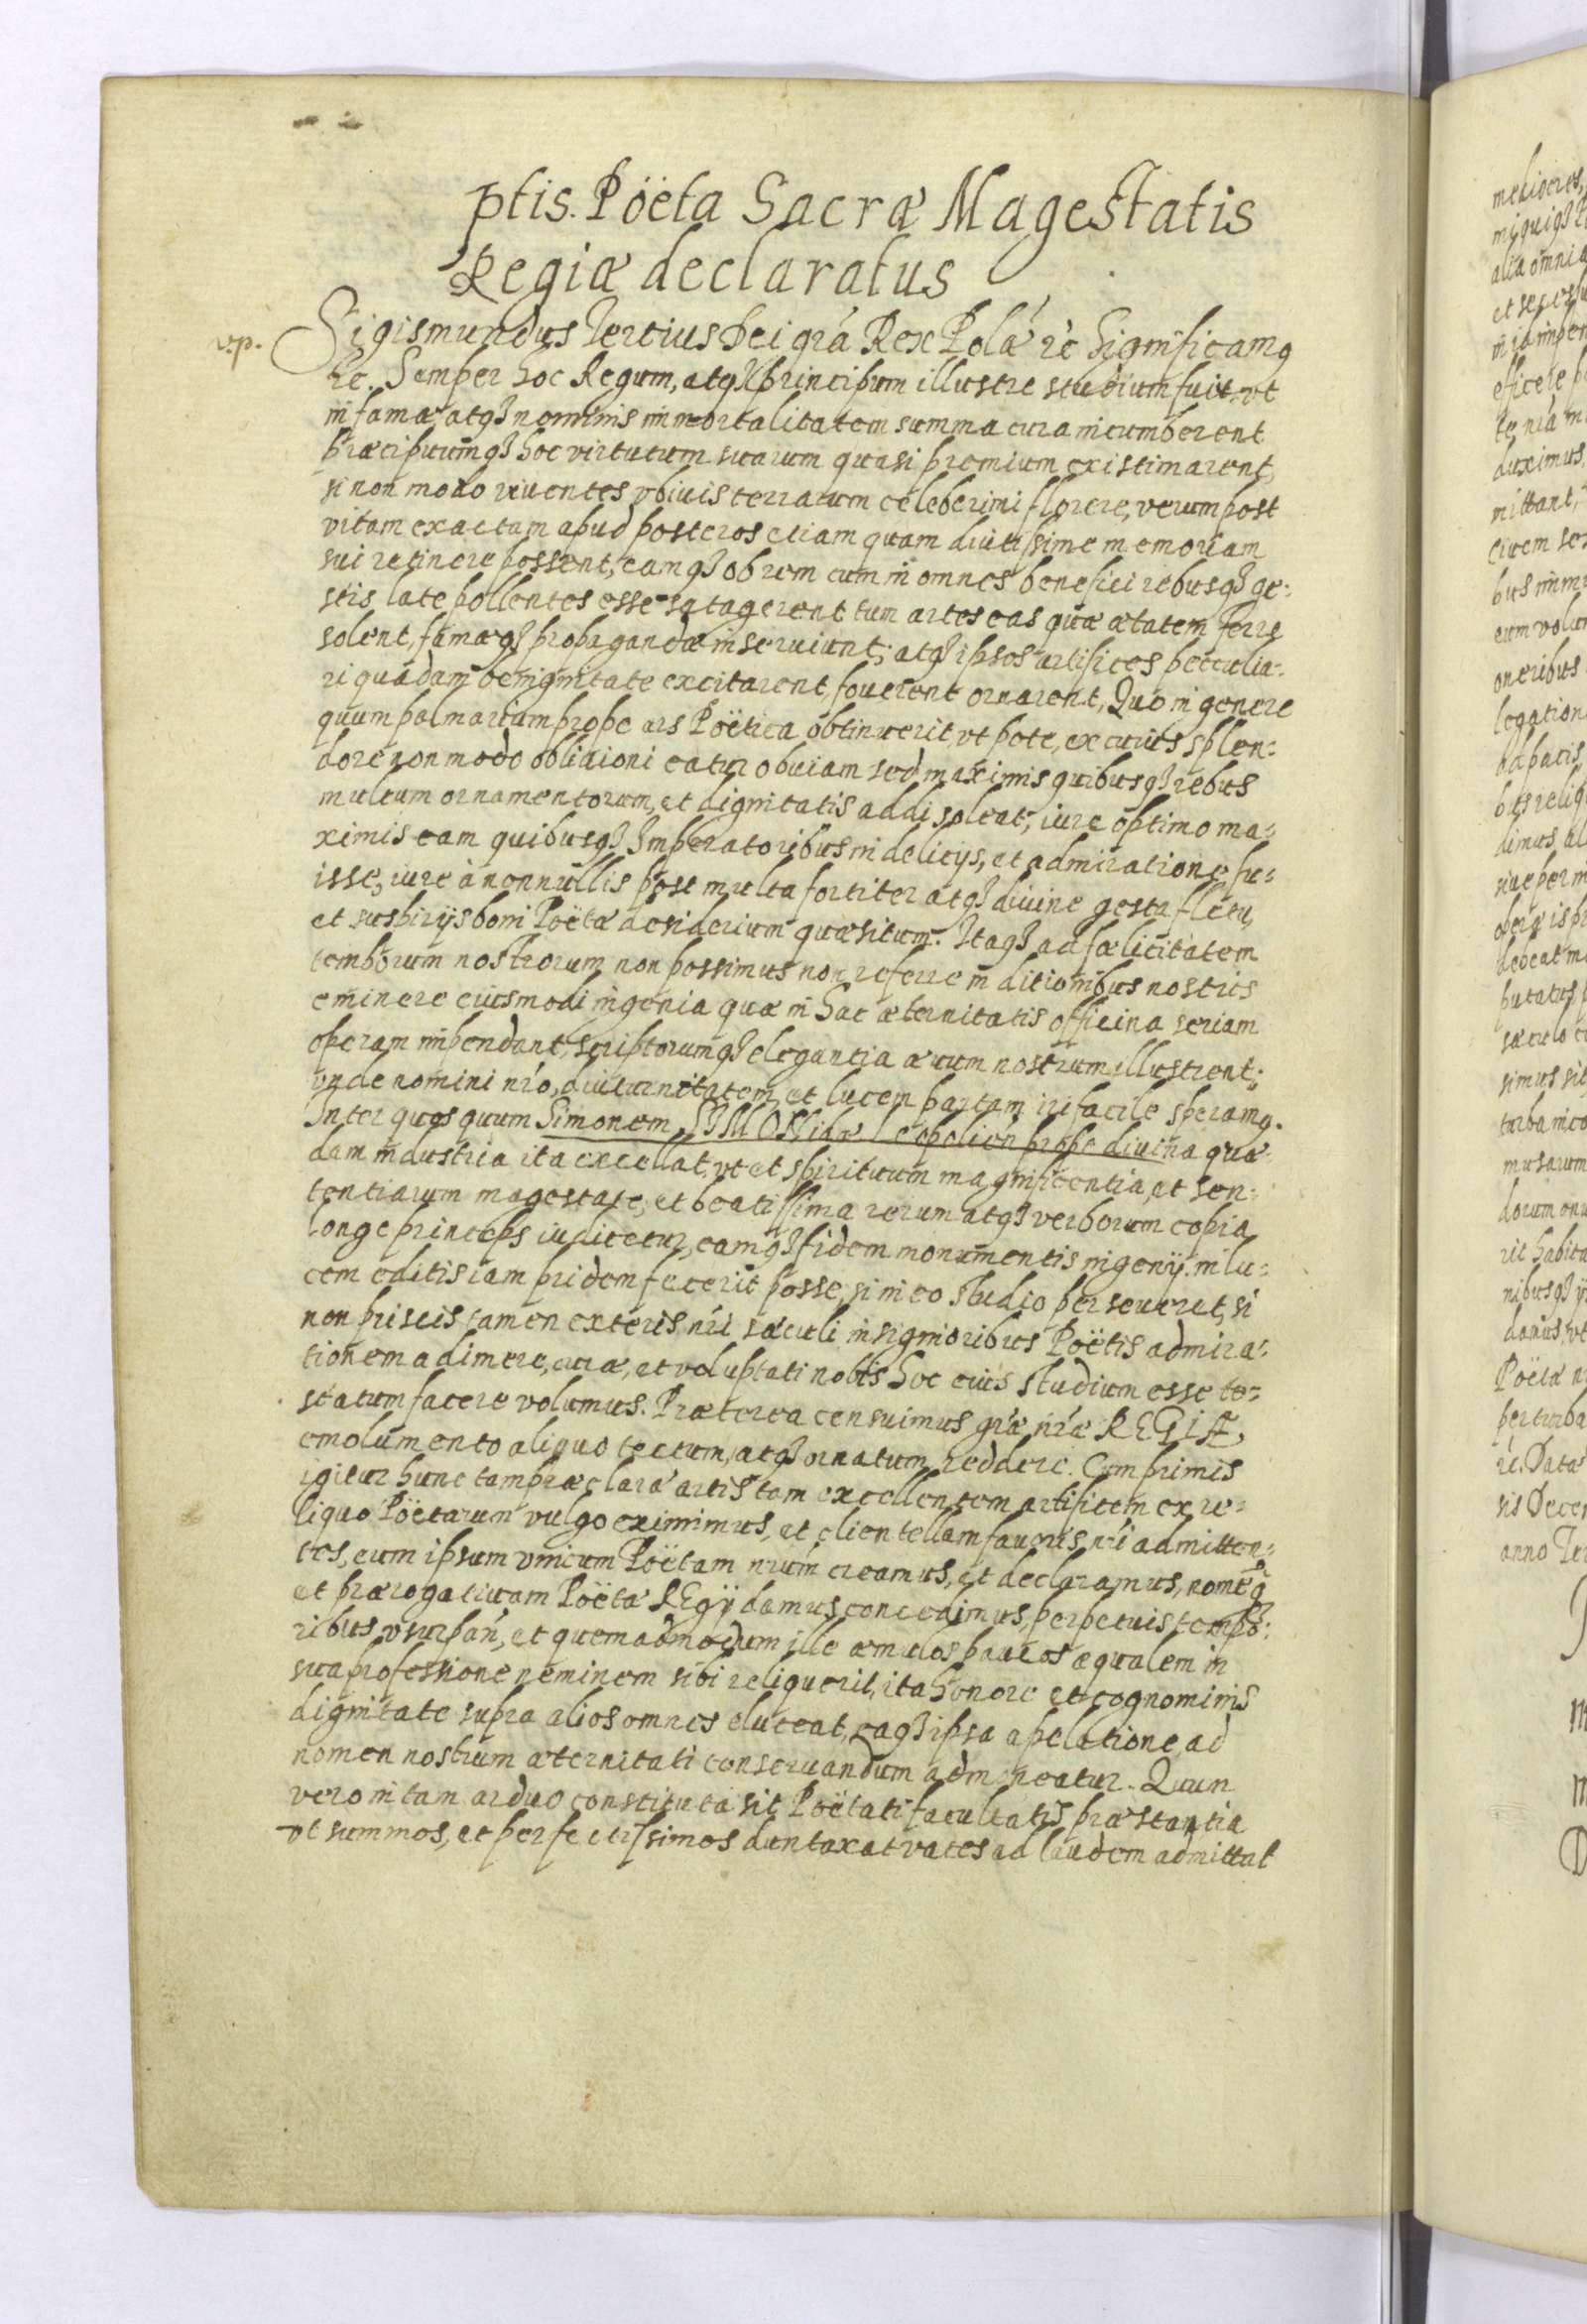 ptis. Pöëta Sacræ Magestatis
Regiæ declaratus
v.p. Sigismundus Tertius Dei gra Rex Polæ rc Significamq
rc. Semper hoc Regum, atq3 principum illustre studium fuit, vt
in famæ, atq3 nominis immortalitatem summa cura incumberent
præcipuumq3 hoc virtutum suarum quasi premium existimarent,
si non modo viuentes vbiuis terrarum celeberimi florere, verum post
vitam exactam apud posteros etiam quam diutissime memoriam
sui retinere possent, eamq3 ob rem cum in omnes benefici rebusq3 ge:
stis late pollentes esse satagerent tum artes eas quæ ætatem ferre
solent, famæq3 propagandæ inseruiunt; atq3 ipsos artifices peculia:
ri quadam benignitate excitarent, fouerent ornarent, Quo in genere
quum palmarium prope ars Poëtica obtinuerit, vt pote, ex cuius splen:
dore non modo obliuioni eatur obuiam sed maximis quibusq3 rebus
multum ornamentorum, et dignitatis addi soleat, iure optimo ma:
ximis eam quibusq3 Imperatoribus in delicijs, et admiratione fu:
isse, iure à nonnullis post multa fortiter atq3 diuine gesta fletu,
et suspirijs boni Poëtæ desiderium quæsitum. Itaq3 ad fælicitatem
temporum nostrorum non possimus non referre in ditionibus nostris
eminere eiusmodi ingenia quæ in hac æternitatis officina seriam
operam impendant, scriptorumq3 elegantia æuum nostrum illustrent;
vnde nomini nro, diuturnitatem, et lucem partam iri facile speramq.
Inter quos quum Simonem SIMONidæ Leopolien prope diuina qua
dam industria ita excellat, vt et spirituum magnificentia, et sen:
tentiarum magestate, et beatissima rerum atq3 verborum copia
longe princeps iudicetur, eamq3 fidem monumentis ingenij in lu:
cem editis iam pridem fecerit posse, si in eo studio perseueret, si
non priscis tamen exteris nri sæculi insignioribus Poëtis admira:
tionem adimere, curæ, et voluptati nobis hoc eius studium esse te:
statum facere volumus. Præterea censuimus græ nræ REGIÆ,
emolumento aliquo tectum, atq3 ornatum reddere. Cum primis
igitur hunc tam præclaræ artis tam excellentem artificem ex re:
liquo Pöëtarum vulgo eximimus, et clientellam fauoris nri admitten:
tes, eum ipsum vnicum Poëtam nrum creamus, et declaramus, nomēq3
et prærogatiuam Poëtæ REgij damus concedimus, perpetuis tempo:
ribus vsurpan, et quemadmodum ille æmulos paucos æqualem in
sua professione neminem sibi reliquerit, ita honore et cognominis
dignitate supra alios omnes eluceat, eaq3 ipsa apelatione, ad
nomen nostrum æternitati conseruandum admoneatur. Quun
vero in tam arduo constituta sit Poëtati facultatis præstantia
vt summos, et perfectissimos duntaxat vates ad laudem admittat